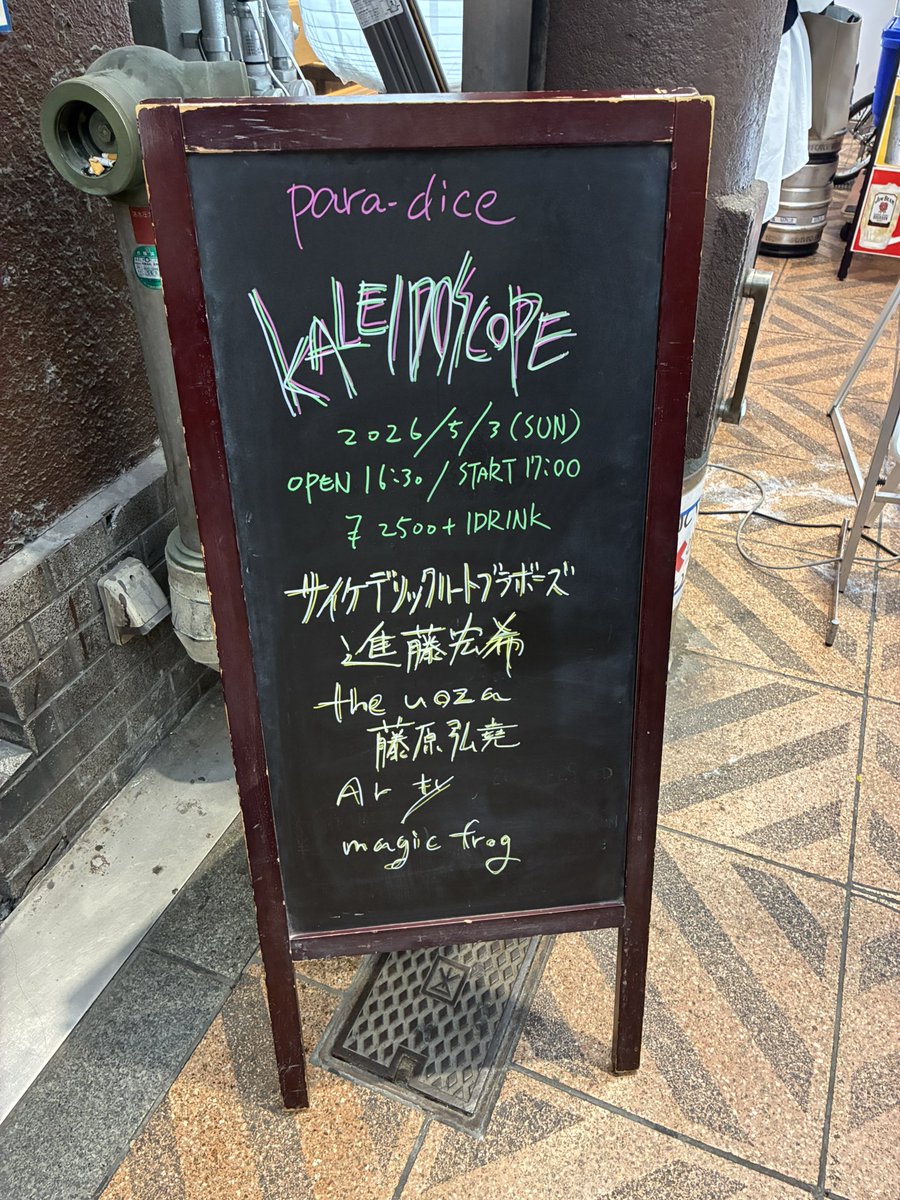 para-dice
KALEIDOSCOPE
2026/5/3(SUN)
OPEN 16:30/START 17:00
¥2500+1DRINK
サイケデリックハートブラボーズ
進藤宏希
the uoza
藤原弘堯
magic frog
JIM BEAM